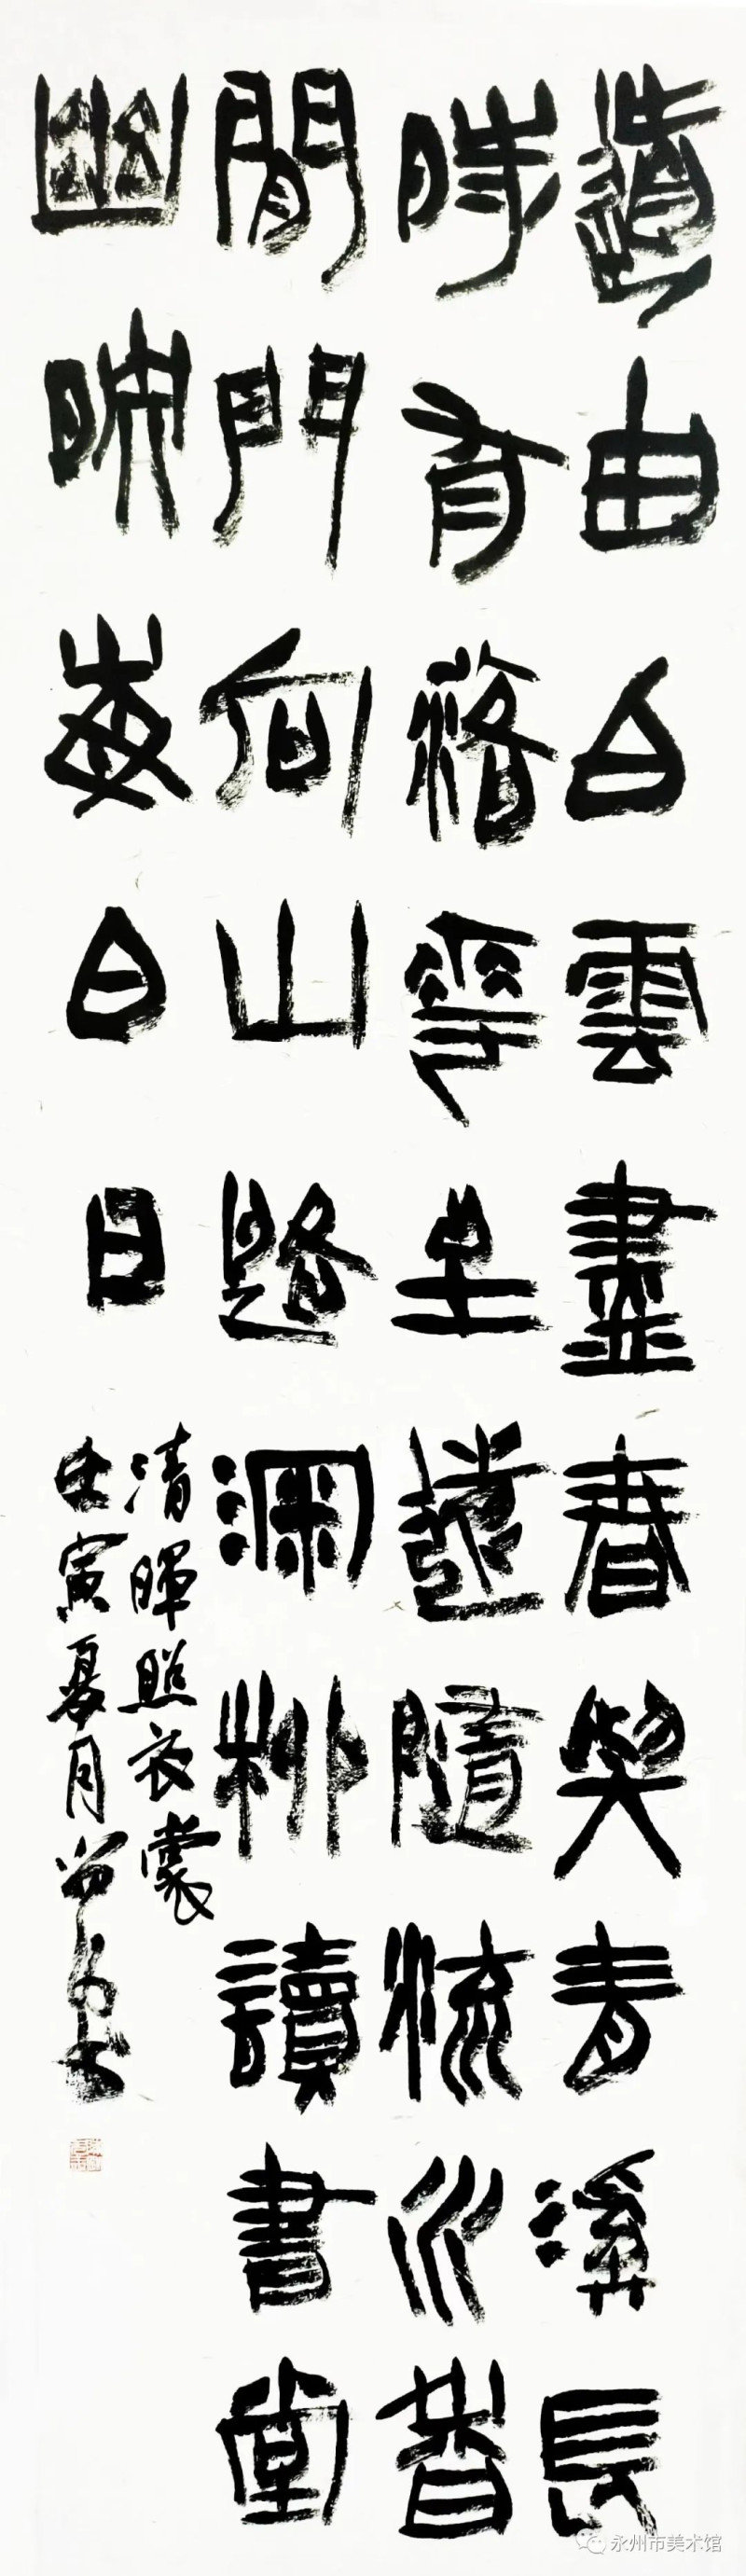 道由白雲盡春與青溪長
時有落花至遠隨流水香
閒門向山路深柳讀書堂
幽映每白日
清暉照衣裳
壬寅夏月
永州市美术馆